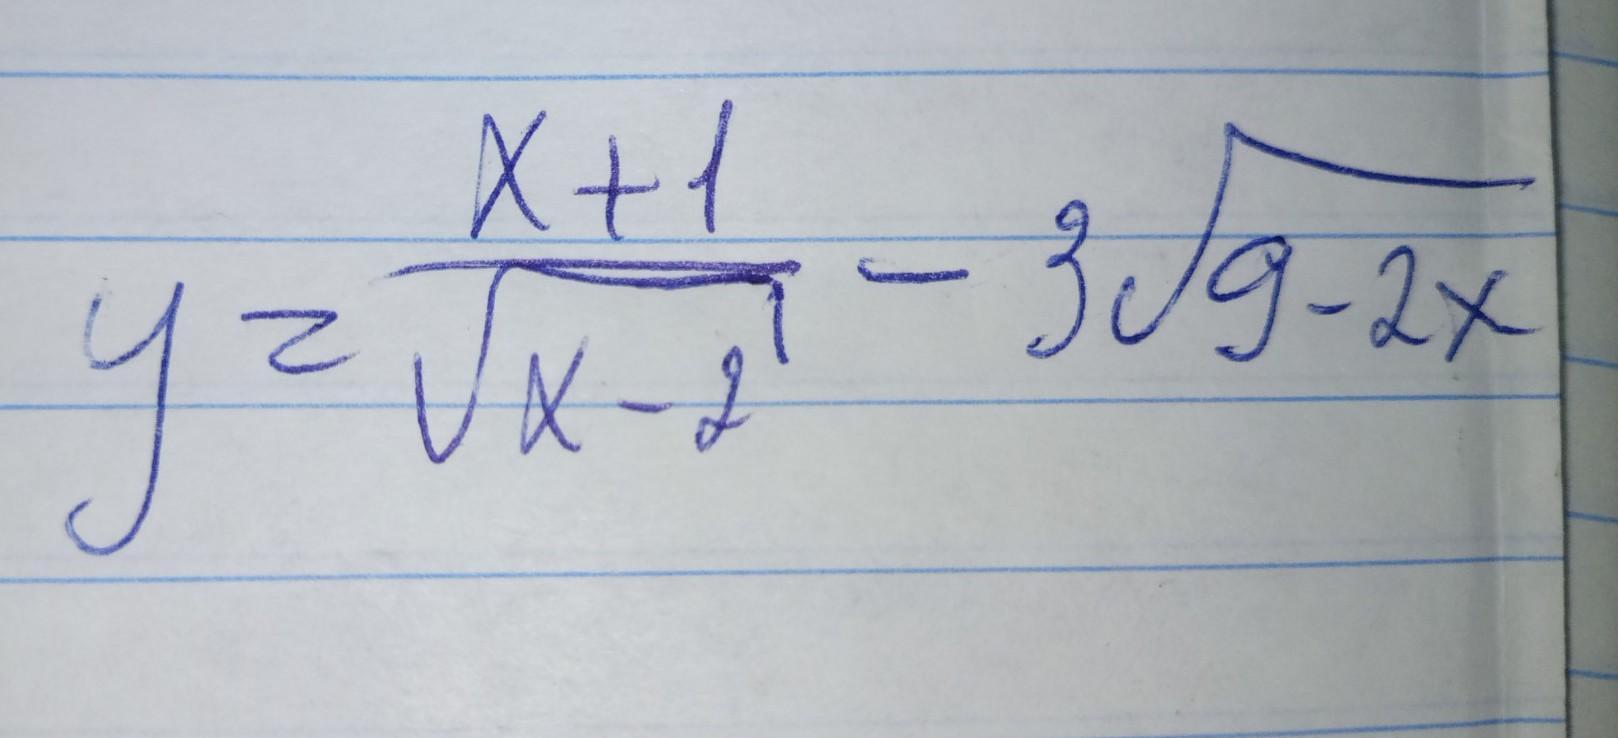 y = \frac{x+1}{\sqrt{x-2}} - 3\sqrt{9-2x}